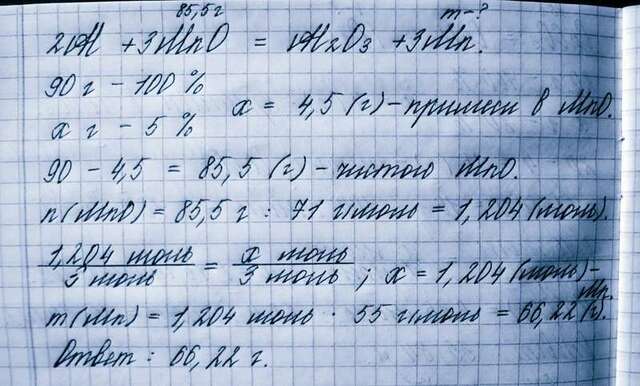 85,5 г m-?
2Al + 3MnO = Al2O3 + 3Mn.
90 г - 100 %
x г - 5 % x = 4,5 (г) - примеси в MnO.
90 - 4,5 = 85,5 (г) - чистого MnO.
n(MnO) = 85,5 г : 71 г/моль = 1,204 (моль).
1,204 моль / 3 моль = x моль / 3 моль ; x = 1,204 (моль) - Mn.
m(Mn) = 1,204 моль · 55 г/моль = 66,22 (г).
Ответ : 66,22 г.